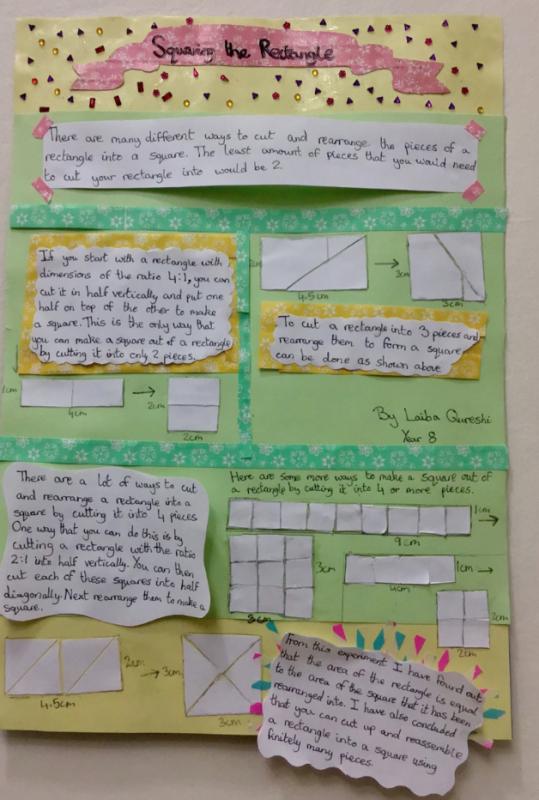 Squaring the Rectangle
There are many different ways to cut and rearrange the pieces of a
rectangle into a square. The least amount of pieces that you would need
to cut your rectangle into would be 2.
If you start with a rectangle with
dimensions of the ratio 4:1, you can
cut it in half vertically and put one
half on top of the other to make
a square. This is the only way that
you can make a square out of a rectangle
by cutting it into only 2 pieces.
1cm
4cm
2cm
2cm
2cm
4.5cm
3cm
3cm
To cut a rectangle into 3 pieces and
rearrange them to form a square
can be done as shown above
By Laiba Qureshi
Year 8
There are a lot of ways to cut
and rearrange a rectangle into a
square by cutting it into 4 pieces
One way that you can do this is by
cutting a rectangle with the ratio
2:1 into half vertically. You can then
cut each of these squares into half
diagonally. Next rearrange them to make a
square.
Here are some more ways to make a square out of
a rectangle by cutting it into 4 or more pieces.
1cm
9cm
3cm
3cm
1cm
4cm
2cm
2cm
2cm
4.5cm
3cm
3cm
From this experiment I have found out
that the area of the rectangle is equal
to the area of the square that it has been
rearranged into. I have also concluded
that you can cut up and reassemble
a rectangle into a square using
finitely many pieces.